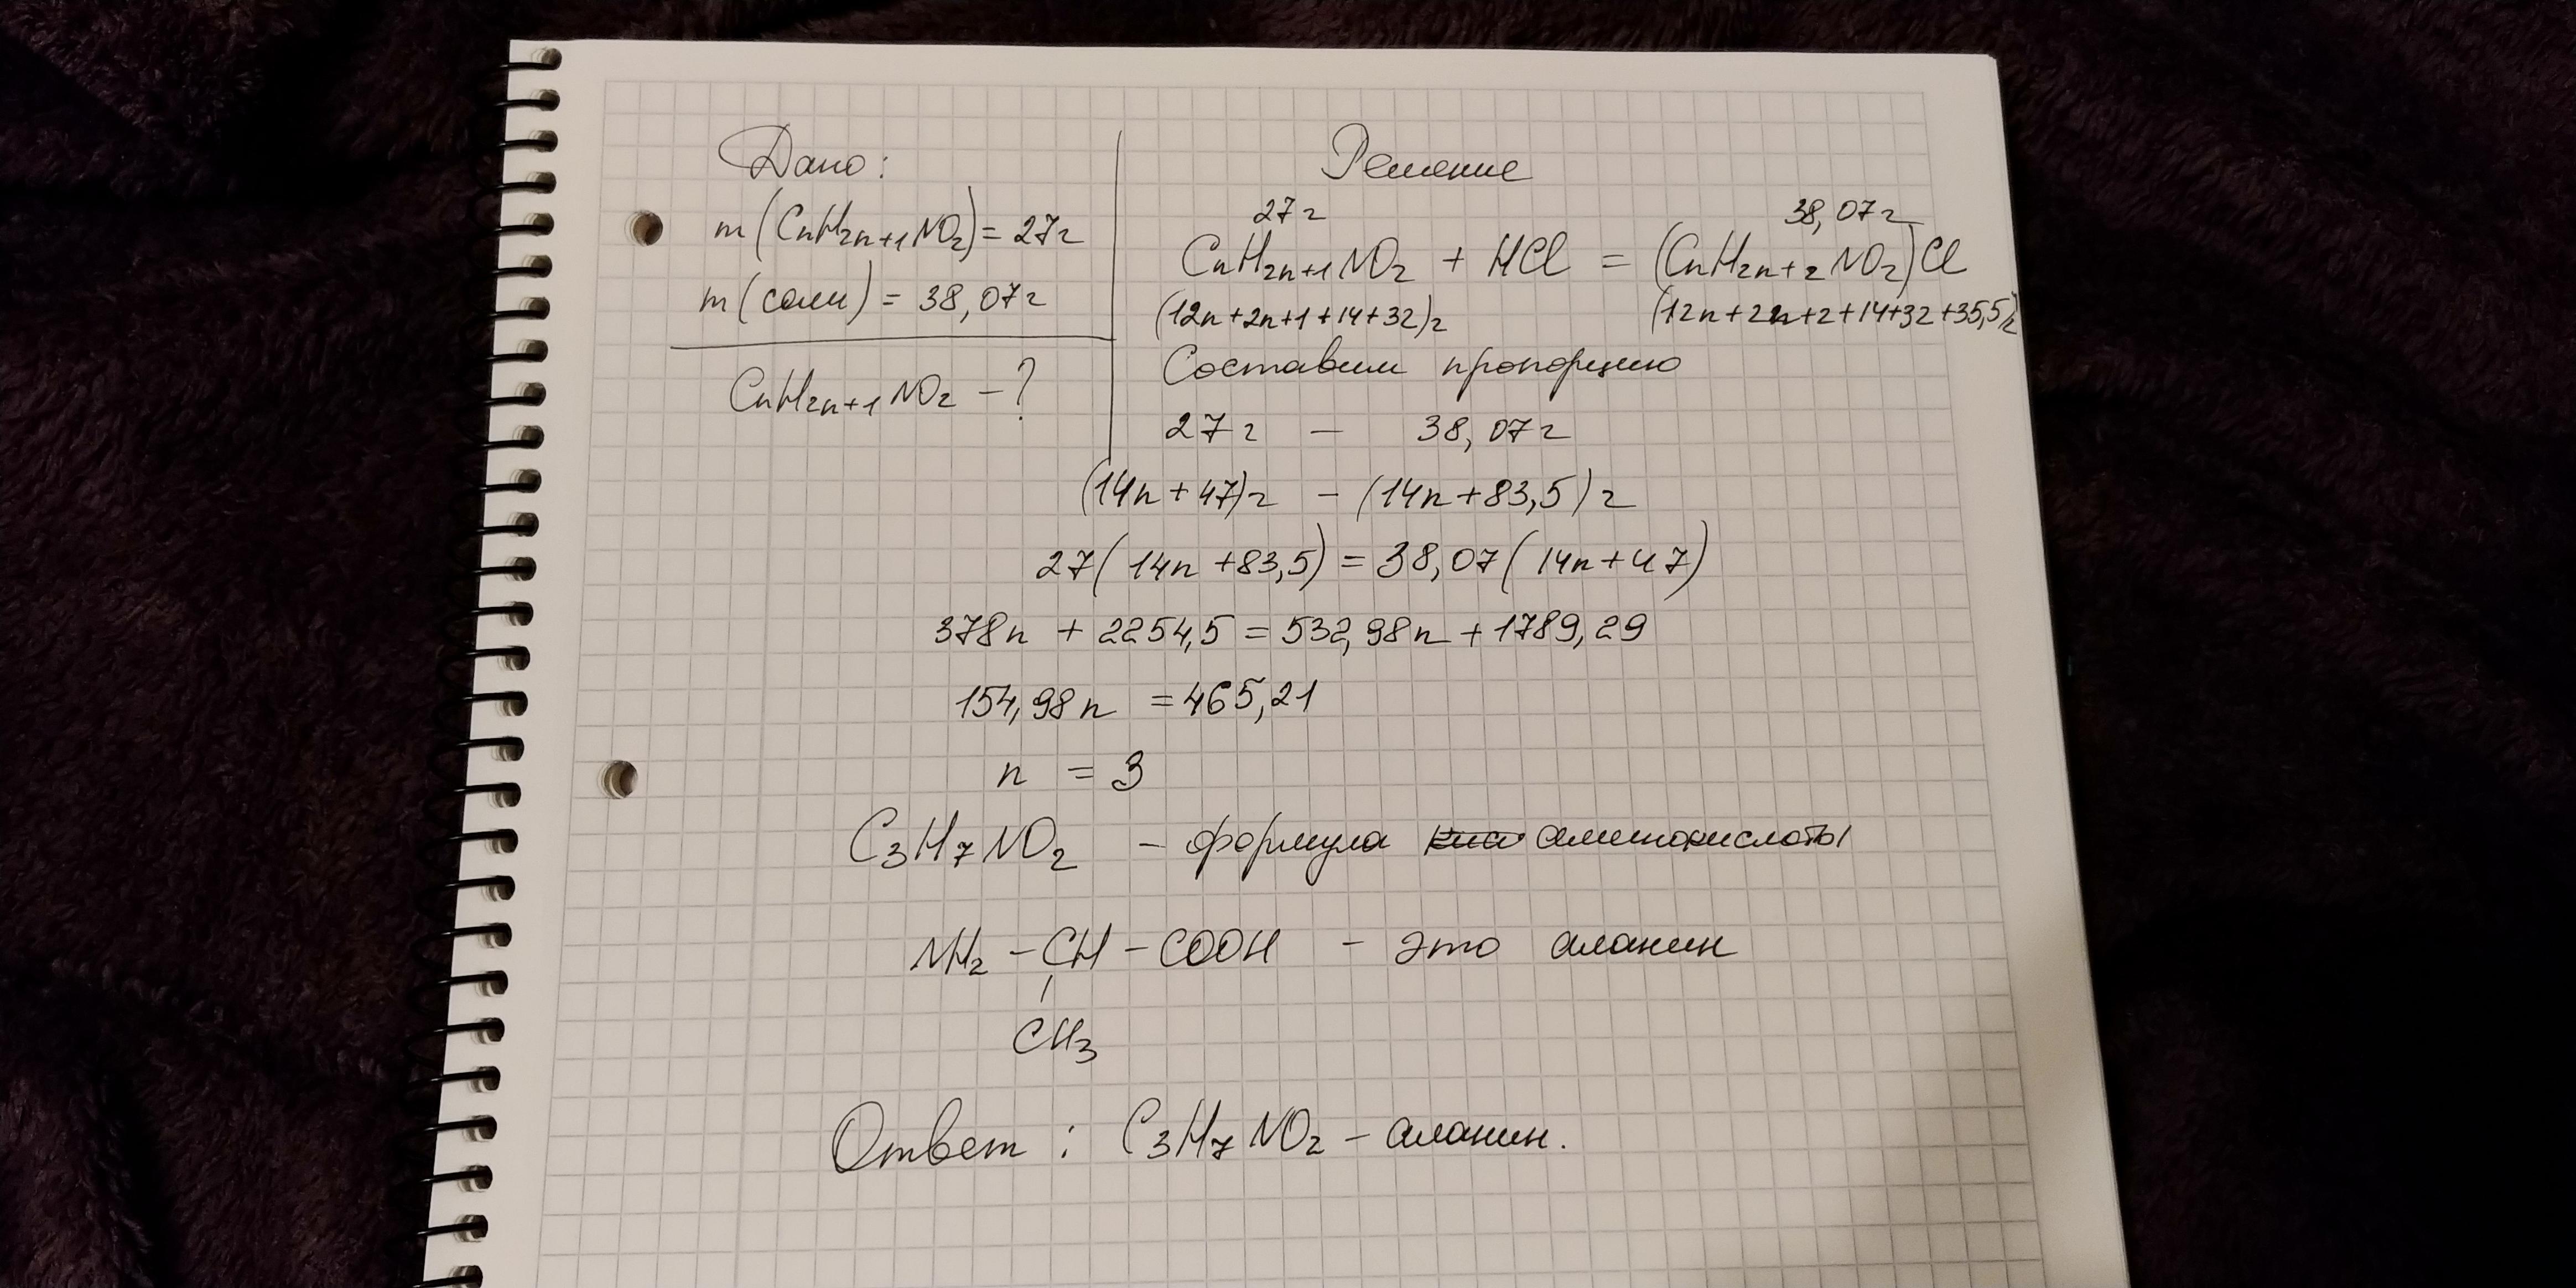 Дано:
m(CnH2n+1NO2) = 27г
m(соли) = 38,07г
CnH2n+1NO2 - ?
Решение
27г 38,07г
CnH2n+1NO2 + HCl = (CnH2n+2NO2)Cl
(12n+2n+1+14+32)г (12n+2n+2+14+32+35,5)г
Составим пропорцию
27г - 38,07г
(14n+47)г - (14n+83,5)г
27(14n+83,5) = 38,07(14n+47)
378n + 2254,5 = 532,98n + 1789,29
154,98n = 465,21
n = 3
C3H7NO2 - формула аминокислоты
NH2 - CH - COOH - это аланин
CH3
Ответ: C3H7NO2 - аланин.